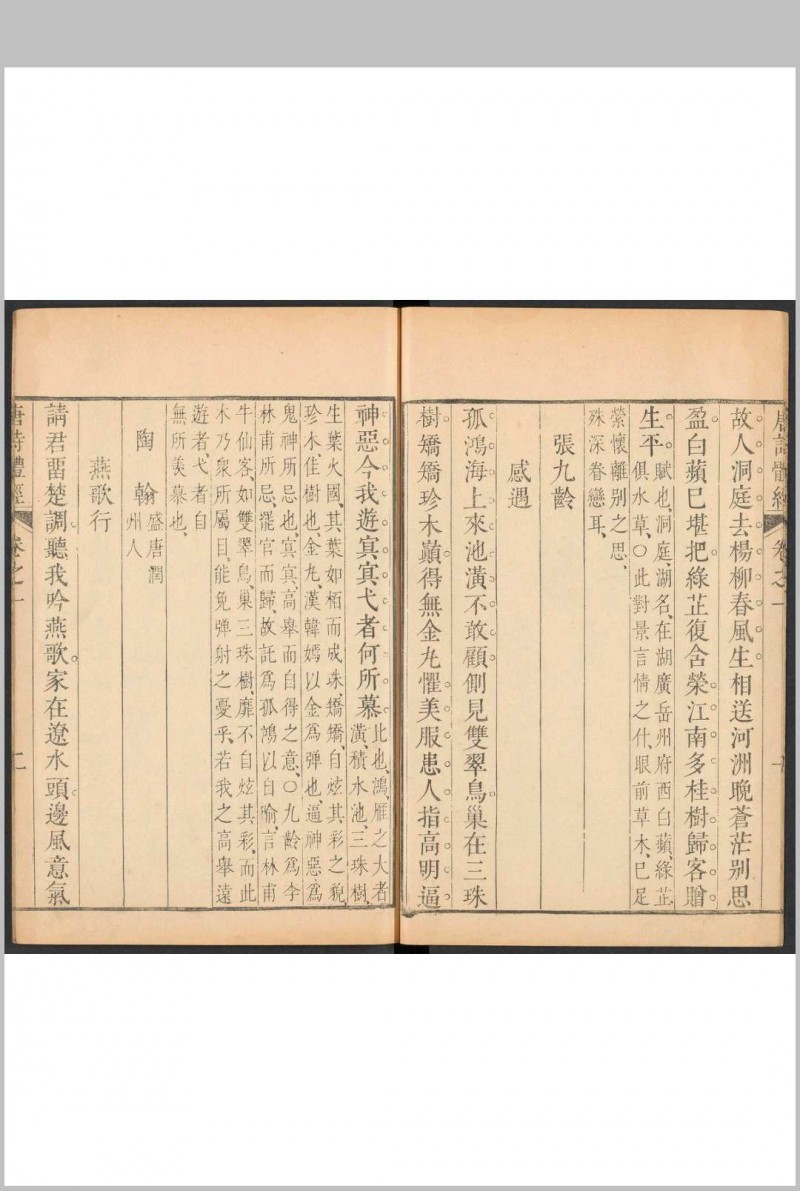 唐詩體經 卷之一
故人洞庭去楊柳春風生相送河洲晚蒼茫別思
盈白蘋已堪把綠芷復含榮江南多桂樹歸客贈
生平
賦也、洞庭、湖名、在湖廣岳州府西白蘋、綠芷、
俱水草、〇此對景言情之什、眼前草木、已足
縈懷離別之思、
殊深眷戀耳、
張九齡
感遇
孤鴻海上來池潢不敢顧側見雙翠鳥巢在三珠
樹矯矯珍木巔得無金丸懼美服患人指高明逼
神惡今我遊冥冥弋者何所慕
比也、鴻、雁之大者
潢、積水池、三珠樹、
生葉火國、其葉如栢而成珠、矯矯、自炫其彩之貌、
珍木、佳樹也、金丸、漢韓嫣以金爲弹也、逼神惡爲
鬼神所忌也、冥冥、高舉而自得之意、〇九齡爲李
林甫所忌、罷官而歸、故託爲孤鴻以自喻、言林甫
牛仙客、如雙翠鳥巢三珠樹、靡不自炫其彩、而此
木乃衆所屬目、能免弹射之憂乎、若我之高舉遠
遊者、弋者自
無所羡慕也、
陶翰
盛唐潤
州人
燕歌行
請君畱楚調聽我吟燕歌家在遼水頭邊風意氣
唐詩體經 卷之一